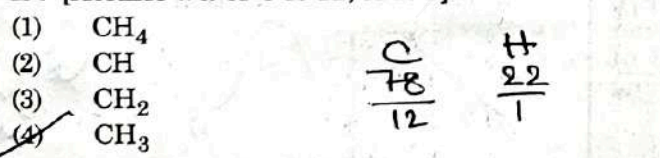 (1) CH₄
(2) CH
(3) CH₂
(4) CH₃
C H
78 22
12 1